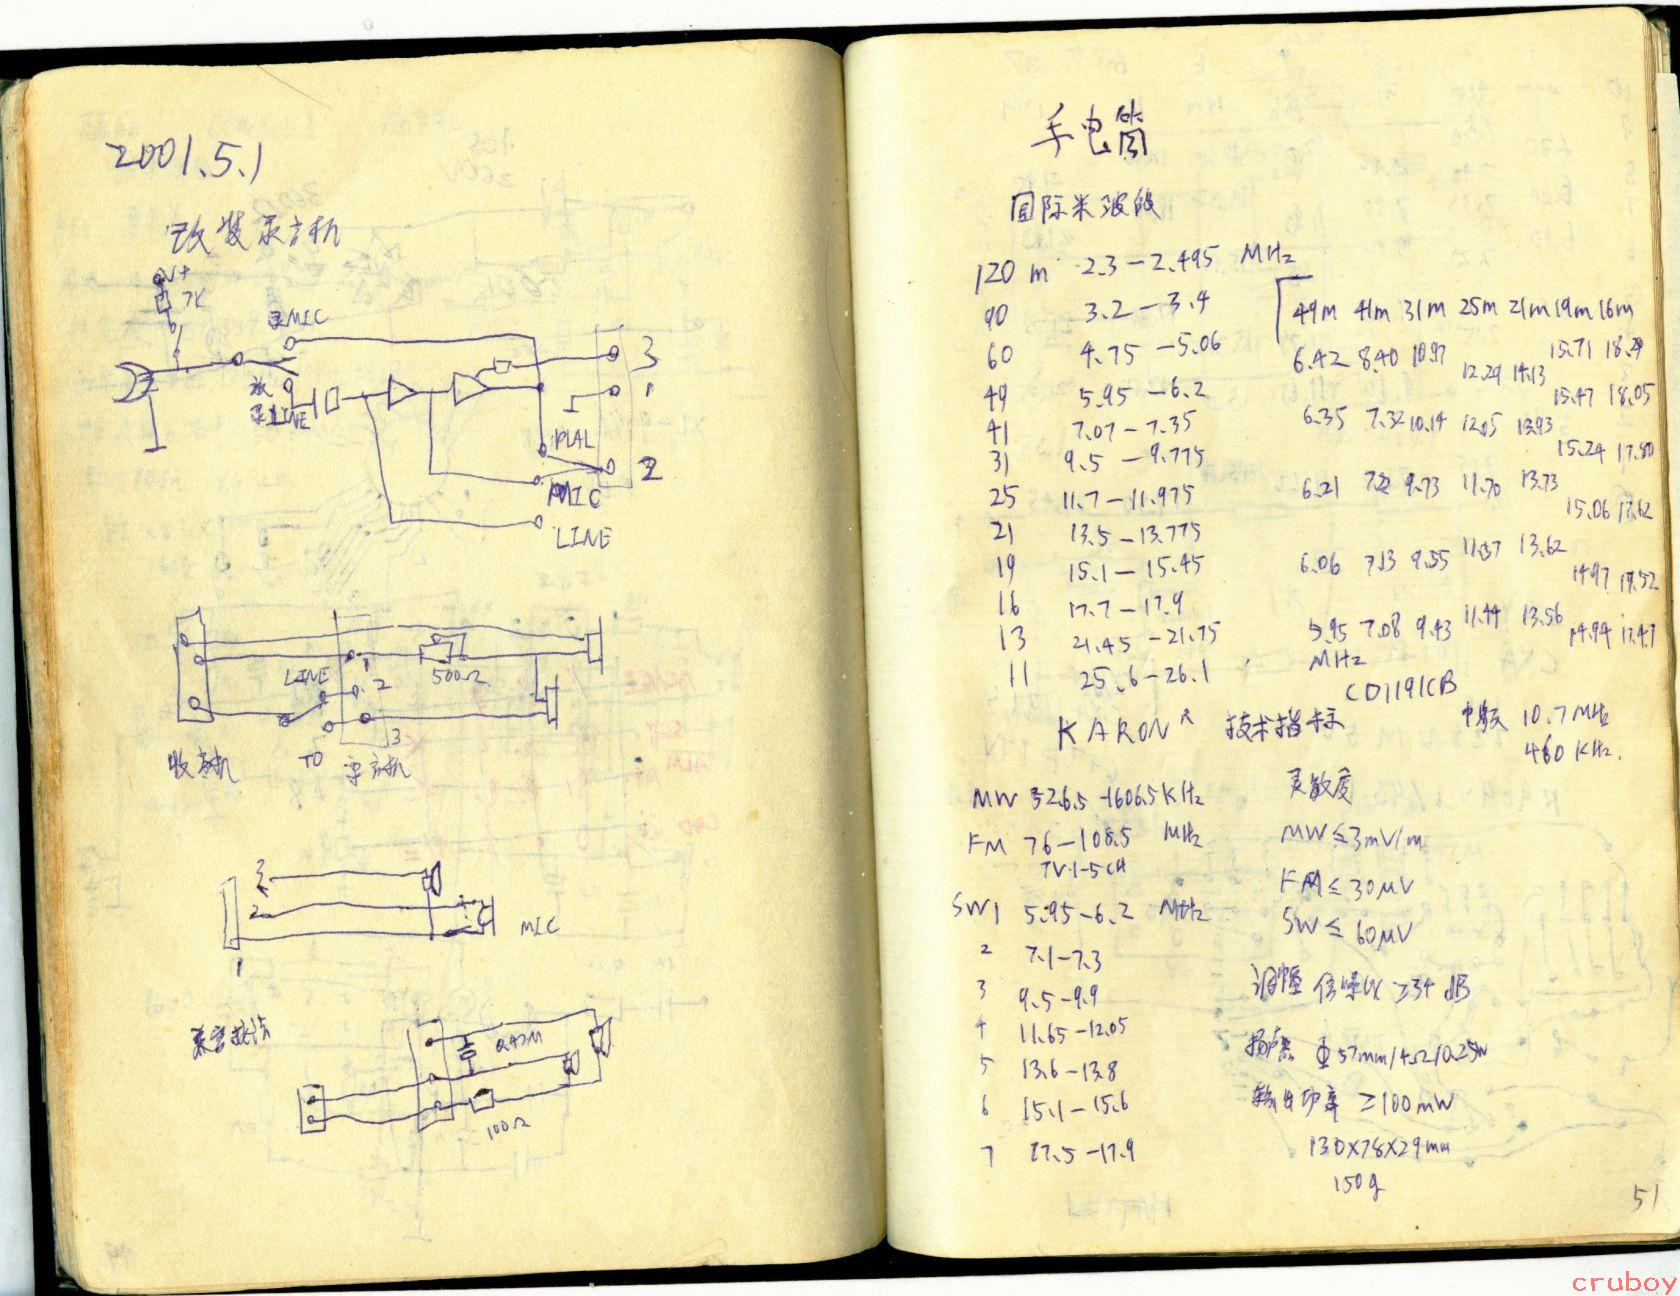 2001.5.1
改装录音机
9V+
7K
录MIC
放
录LINE
3
1
PLAL
2
MIC
LINE
LINE
1
2
500Ω
3
收录机
TO
录音机
3
2
MIC
1
录音接法
0.47M
100Ω
手电筒
国际米波段
120 m 2.3-2.495 MHz
90 3.2-3.4
60 4.75-5.06
49 5.95-6.2
41 7.07-7.35
31 9.5-9.775
25 11.7-11.975
21 13.5-13.775
19 15.1-15.45
16 17.7-17.9
13 21.45-21.75
11 25.6-26.1
49m 41m 31m 25m 21m 19m 16m
6.42 8.40 10.97 12.29 14.13 15.71 18.29
6.35 7.32 10.14 12.05 13.93 15.47 18.05
6.21 7.2 9.73 11.70 13.73 15.24 17.80
6.06 7.13 9.55 11.57 13.62 15.06 17.62
5.95 7.08 9.43 11.44 13.56 14.97 17.52
14.94 17.47
MHz
CD1191CB
KARON R 技术指标
中频 10.7 MHz
460 KHz.
MW 526.5-1606.5 KHz
FM 76-108.5 MHz
TV.1-5CH
SW1 5.95-6.2 MHz
2 7.1-7.3
3 9.5-9.9
4 11.65-12.05
5 13.6-13.8
6 15.1-15.6
7 17.5-17.9
灵敏度
MW≤3mV/m
FM≤30μV
SW≤60μV
调幅 信噪比 ≥34 dB
扬声器 Φ57mm/4Ω/0.25W
输出功率 ≥100mW
130X78X29mm
150g
51
cruboy